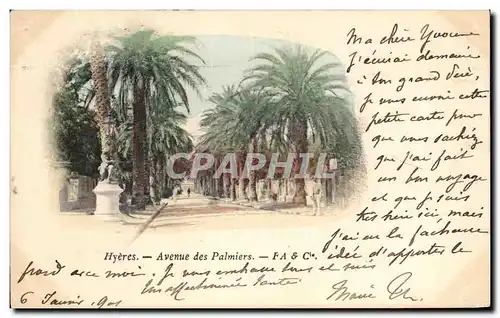 Ma chère Yvonne
J'écrirai demaine
à ton grand désir,
je vous envoie cette
petite carte pour
que vous sachiez
que j'ai fait
un bon voyage
et que je suis
très bien ici, mais
j'ai eu la fâcheuse
idée d'apporter le
froid avec moi. Je vous embrasse tous et suis
votre affectionnée tante
Marie
6 Janvier 1901
Hyères. — Avenue des Palmiers. — FA & Cie.
CPA